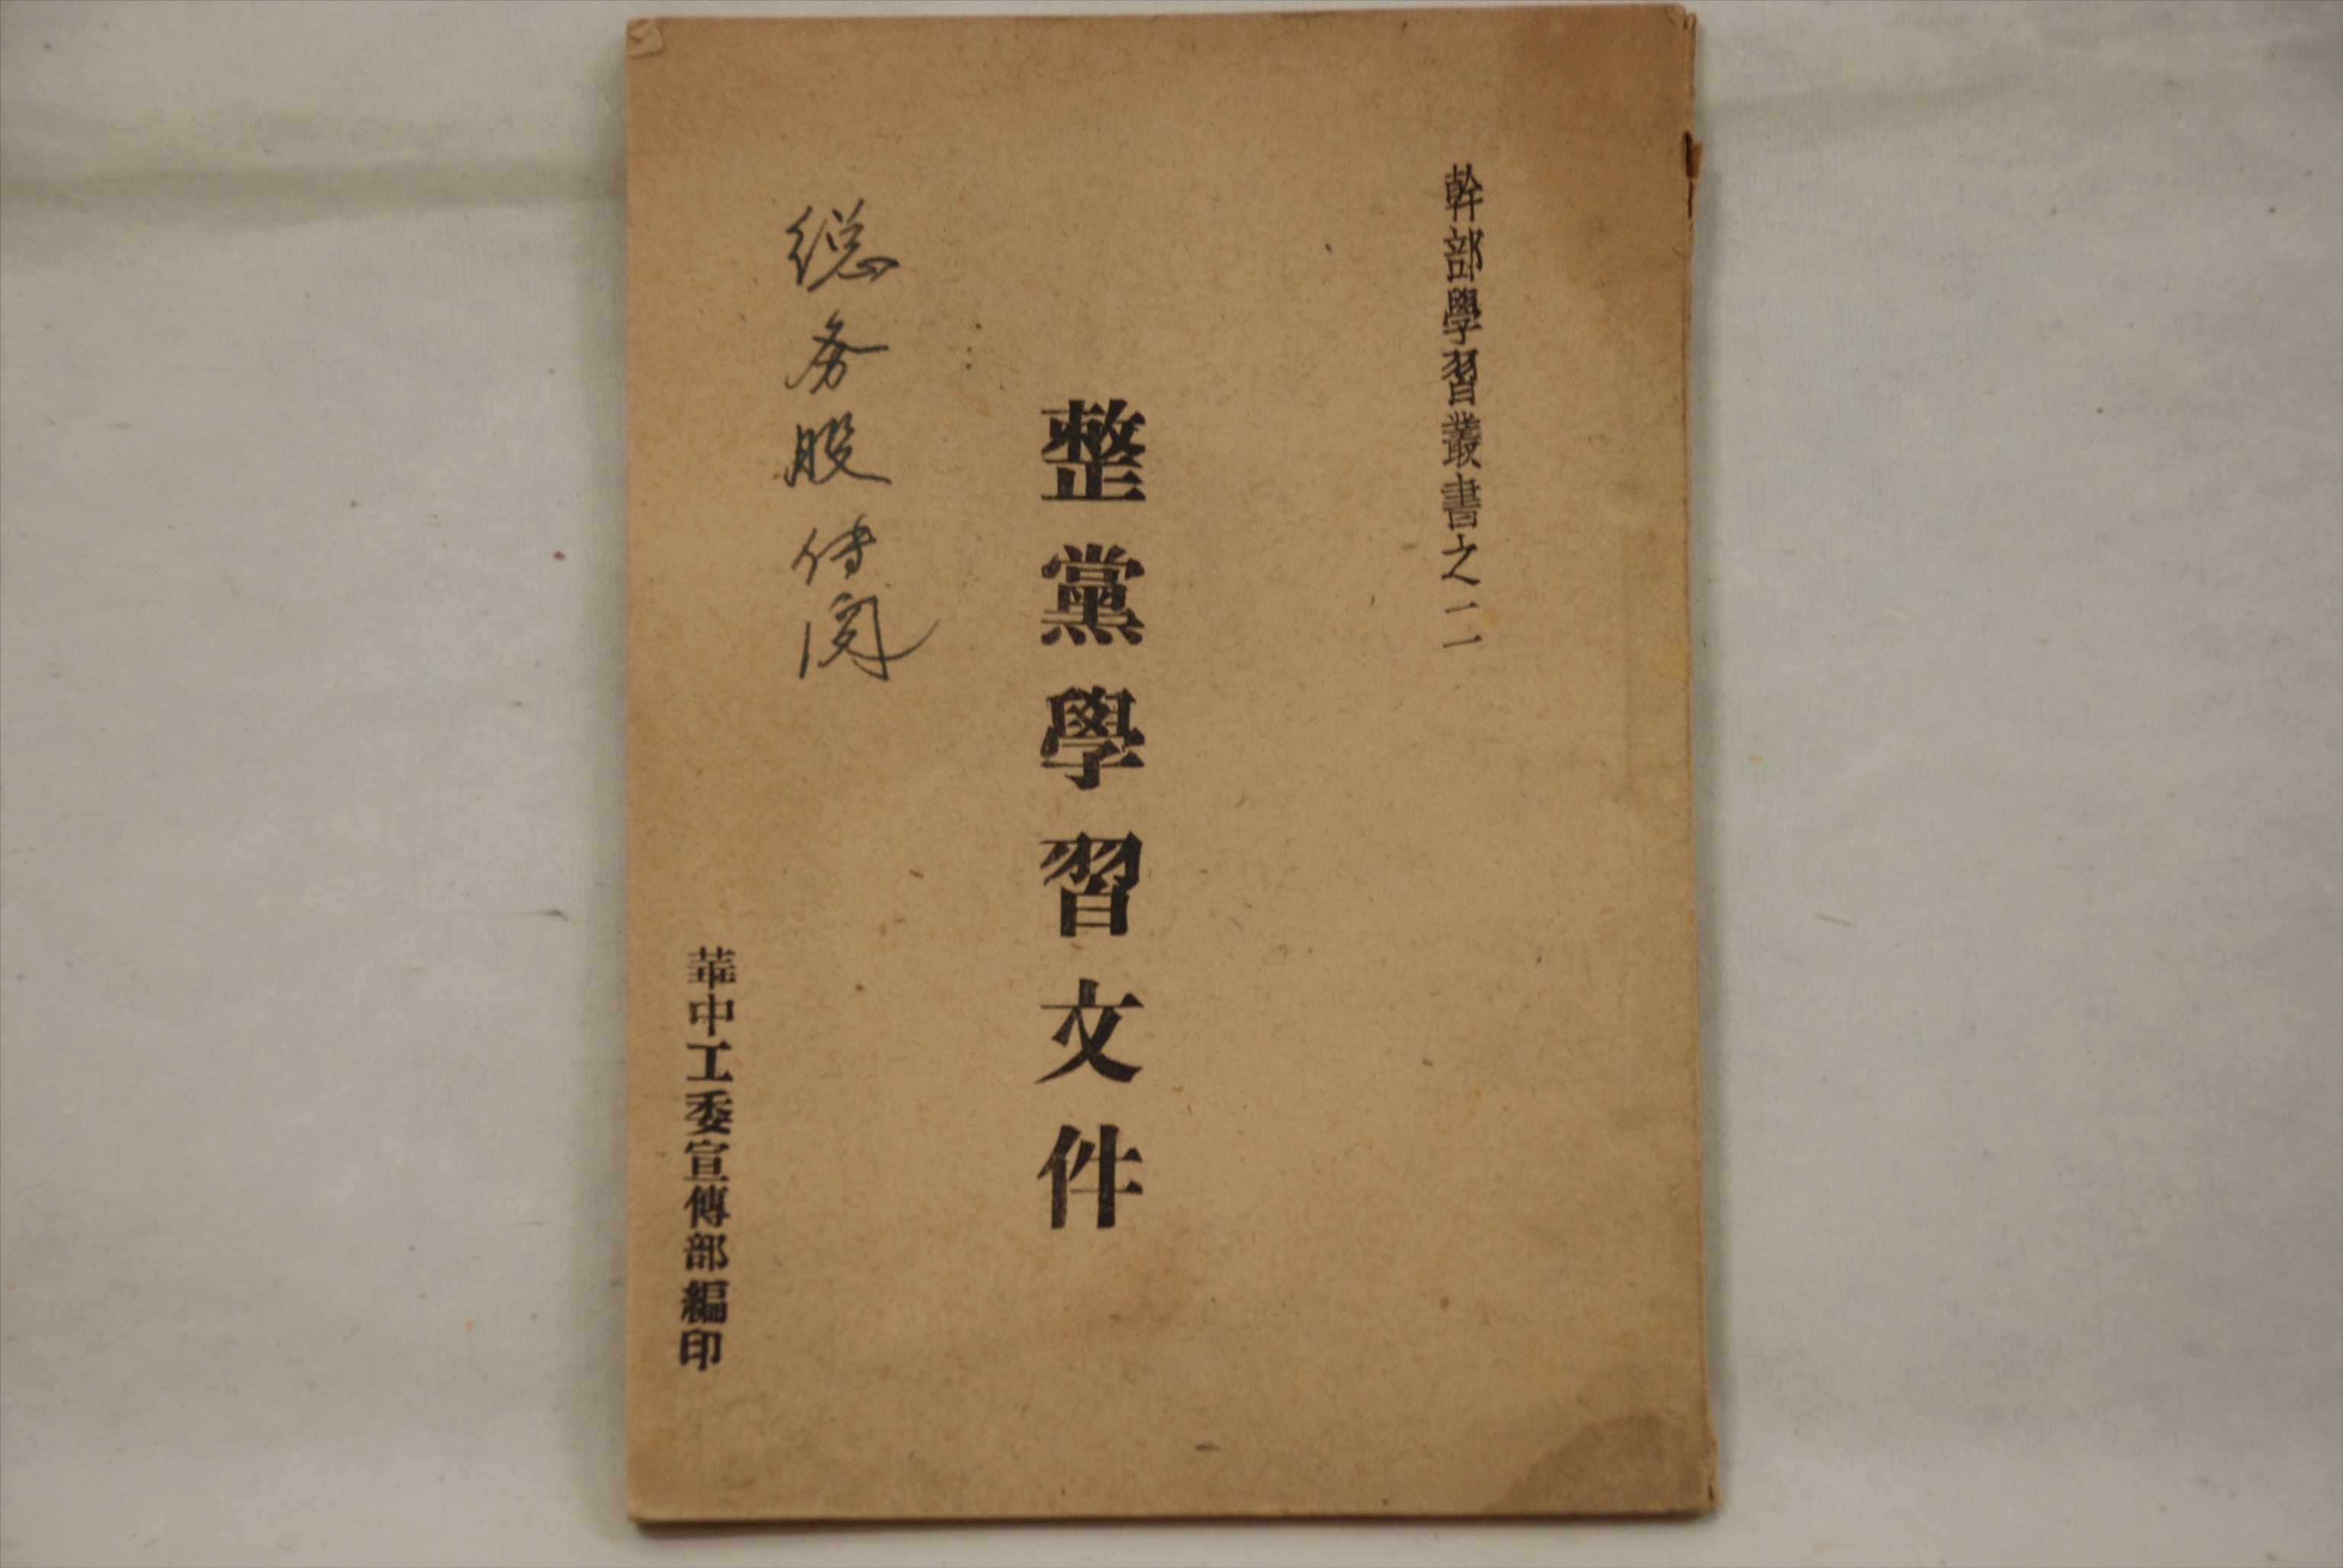 幹部學習叢書之二
整黨學習文件
総务股传阅
華中工委宣傳部編印